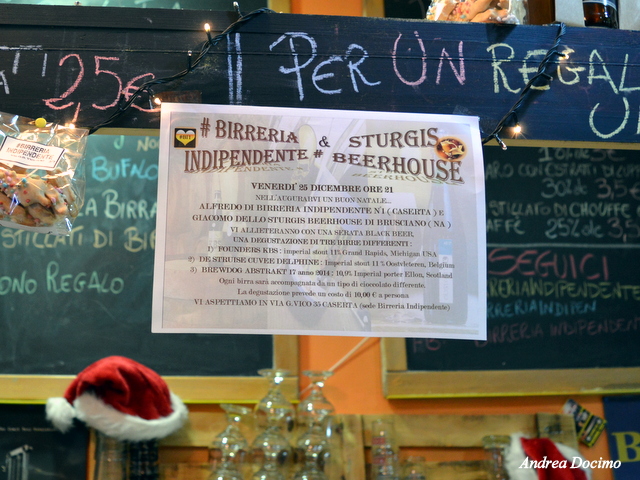 2,5€
PER UN REGAL
#BIRRERIA
INDIPENDENTE
# BIRRERIA & STURGIS
INDIPENDENTE # BEERHOUSE
VENERDI' 25 DICEMBRE ORE 21
NELL'AUGURARVI UN BUON NATALE..
ALFREDO DI BIRRERIA INDIPENDENTE N°1 ( CASERTA ) E
GIACOMO DELLO STURGIS BEERHOUSE DI BRUSCIANO ( NA )
VI ALLIETERANNO CON UNA SERATA BLACK BEER,
UNA DEGUSTAZIONE DI TRE BIRRE DIFFERENTI :
1) FOUNDERS KBS : imperial stout 11% Grand Rapids, Michigan USA
2) DE STRUISE CUVEE DELPHINE : Imperial stout 11 % Oostvleteren, Belgium
3) BREWDOG ABSTRAKT 17 anno 2014 : 10,9% Imperial porter Ellon, Scotland
Ogni birra sarà accompagnata da un tipo di cioccolato differente.
La degustazione prevede un costo di 10,00 € a persona
VI ASPETTIAMO IN VIA G. VICO 35 CASERTA (sede Birreria Indipendente)
BUFALO
BIRRA
STILLATI DI
ONO REGALO
30l de 3,5€
STILLATO DI CHOUFFE
25l de 3,5€
SEGUICI
BIRRERIAINDIPENDENTE
BIRRERIAINDIPEN
BIRRERIA INDIPENDENT
Andrea Docimo